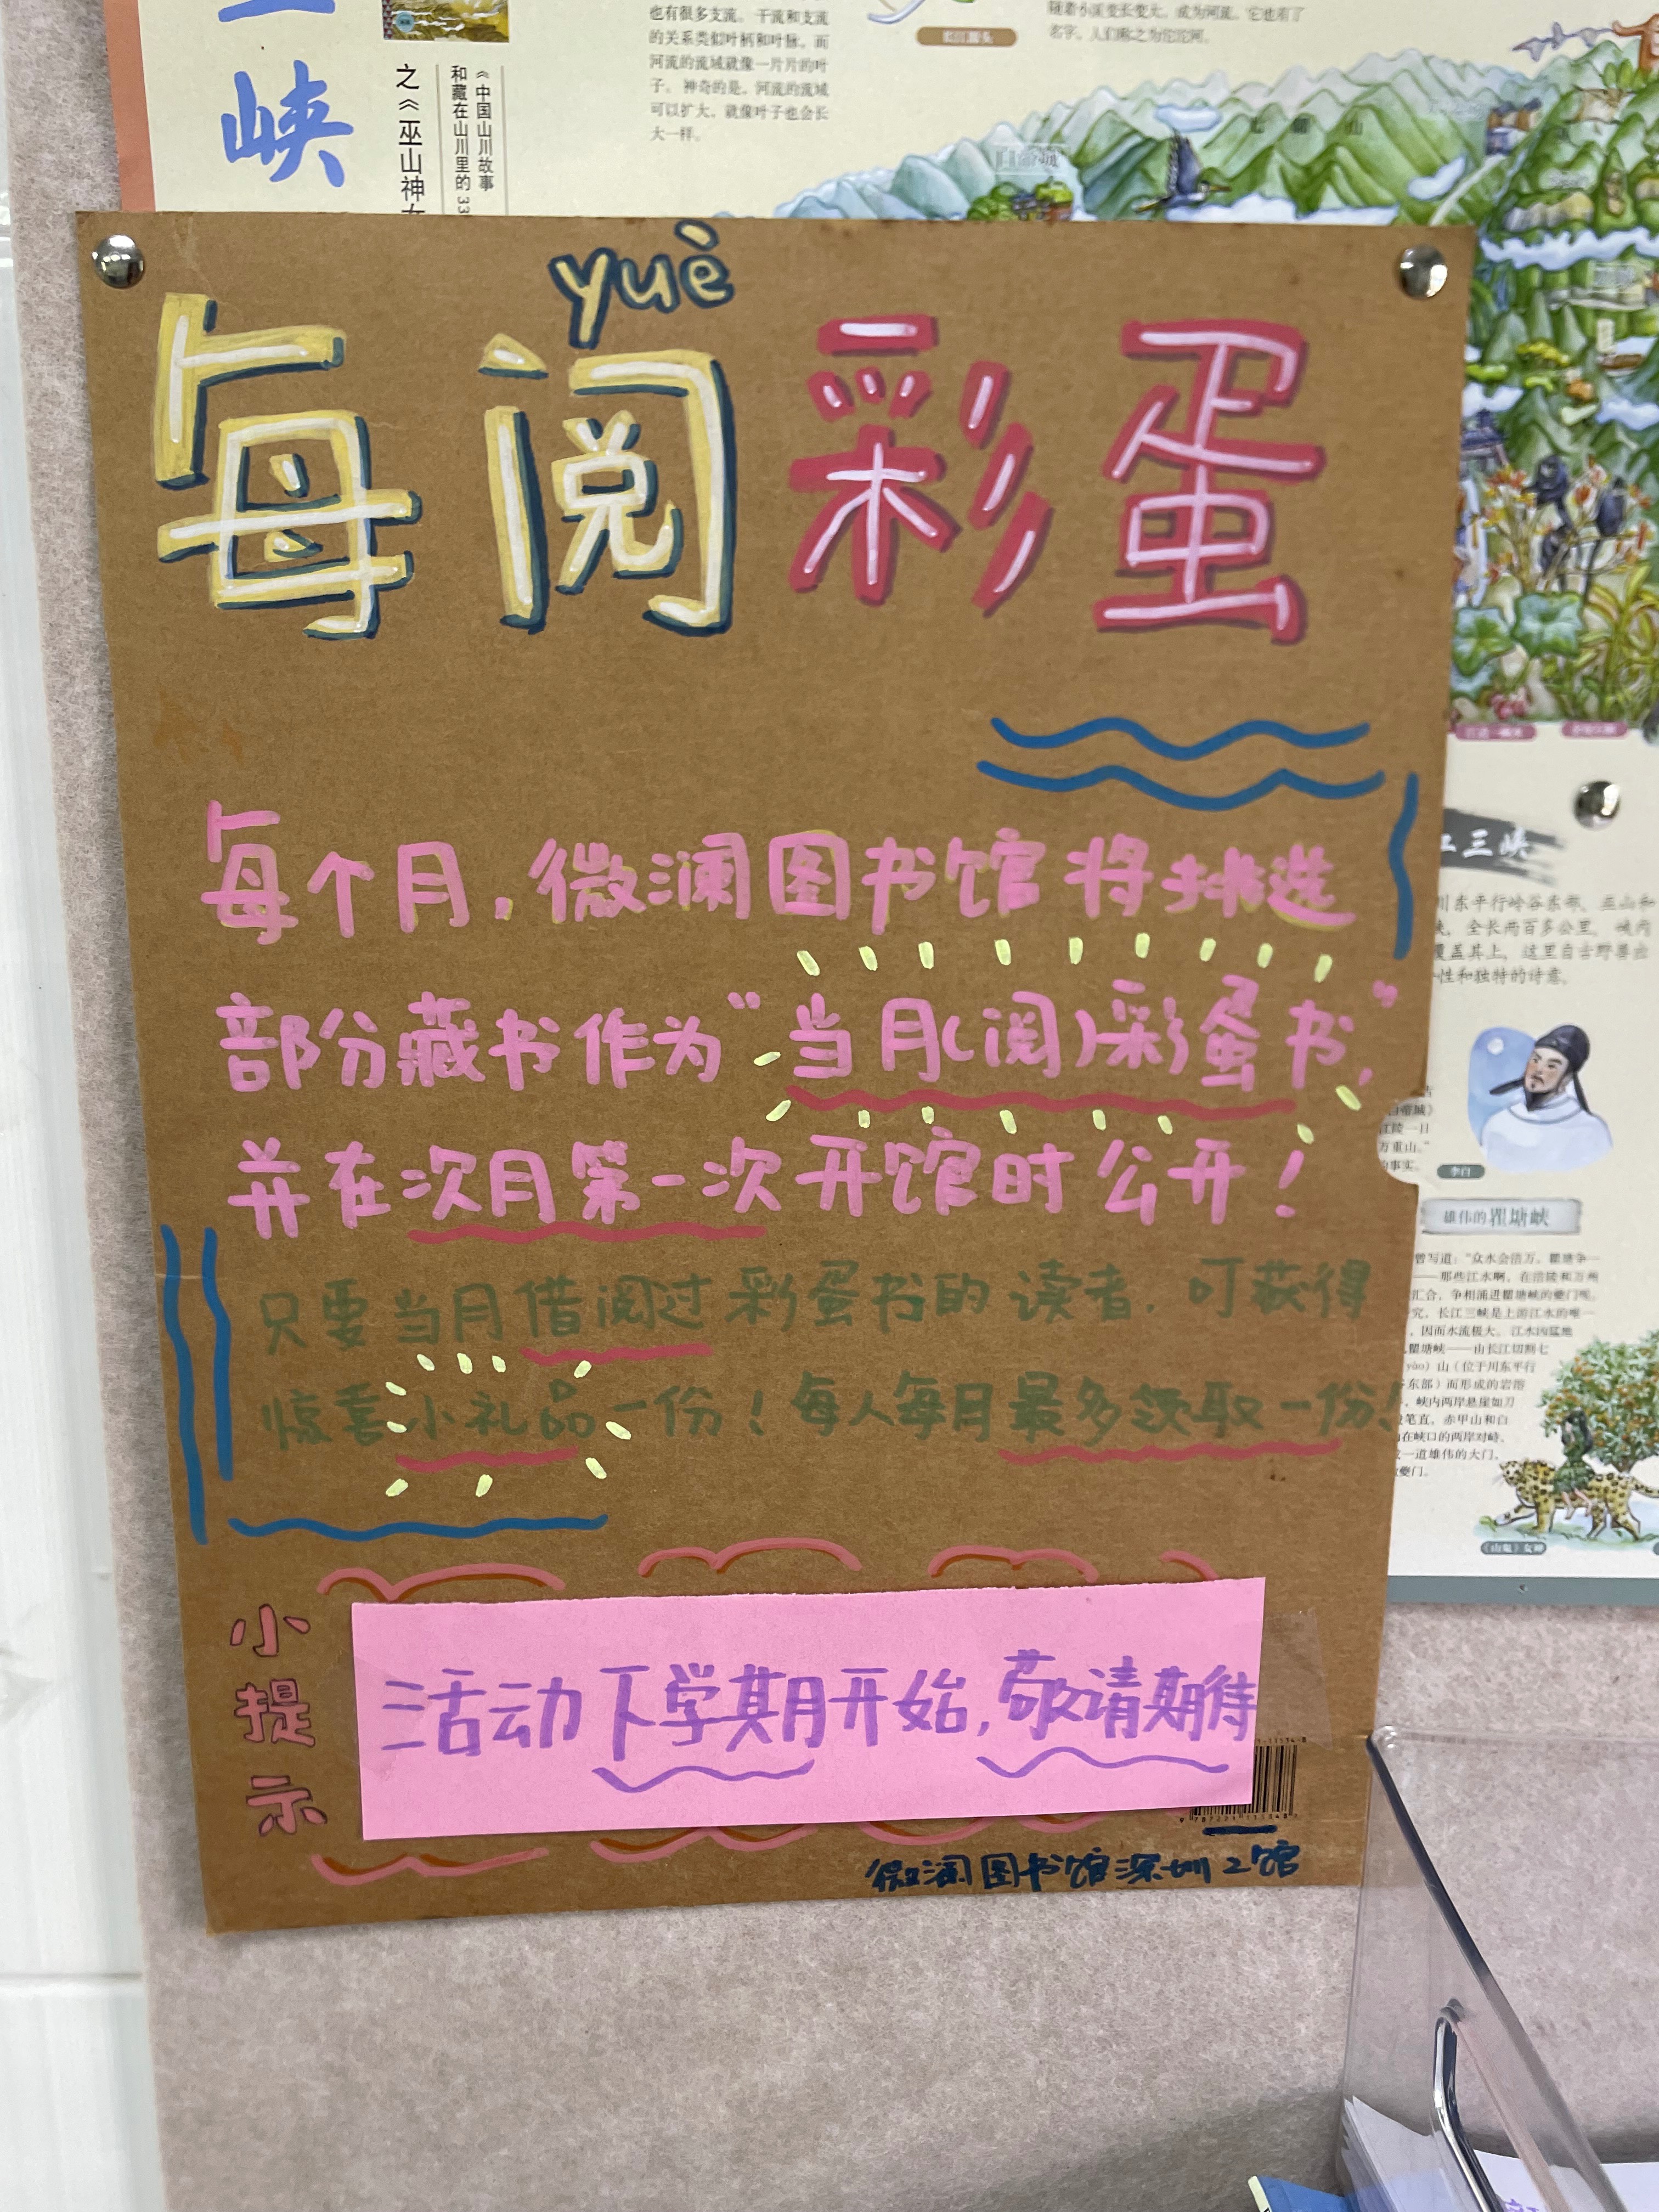 峡
之《巫山神女
《中国山川故事
和藏在山川里的33
也有很多支流。干流和支流
的关系类似叶柄和叶脉。而
河流的流域就像一片片的叶
子。神奇的是，河流的流域
可以扩大，就像叶子也会长
大一样。
随着小溪变长变大，成为河流，它也有了
名字，人们称之为沱沱河。
yuè
每阅彩蛋
每个月，微澜图书馆将挑选
部分藏书作为“当月(阅)彩蛋书”，
并在次月第一次开馆时公开！
只要当月借阅过彩蛋书的读者，可获得
惊喜小礼品一份！每人每月最多领取一份！
小提示
活动下学期开始，敬请期待
微澜图书馆深圳2馆
江三峡
川东平行岭谷东部，巫山和
峡，全长两百多公里。峡内
覆盖其上，这里自古野兽出
性和独特的诗意。
白帝城》
江陵一日
万重山。”
的事实。
李白
雄伟的瞿塘峡
曾写道：“众水会涪万，瞿塘争一
——那些江水啊，在涪陵和万州
汇合，争相涌进瞿塘峡的夔门呢。
究，长江三峡是上游江水的唯一
，因而水流极大。江水凶猛地
瞿塘峡——由长江切割七
yào）山（位于川东平行
东部）而形成的岩溶
峡内两岸悬崖如刀
笔直。赤甲山和白
在峡口的两岸对峙，
一道雄伟的大门，
夔门。
《山鬼》女神